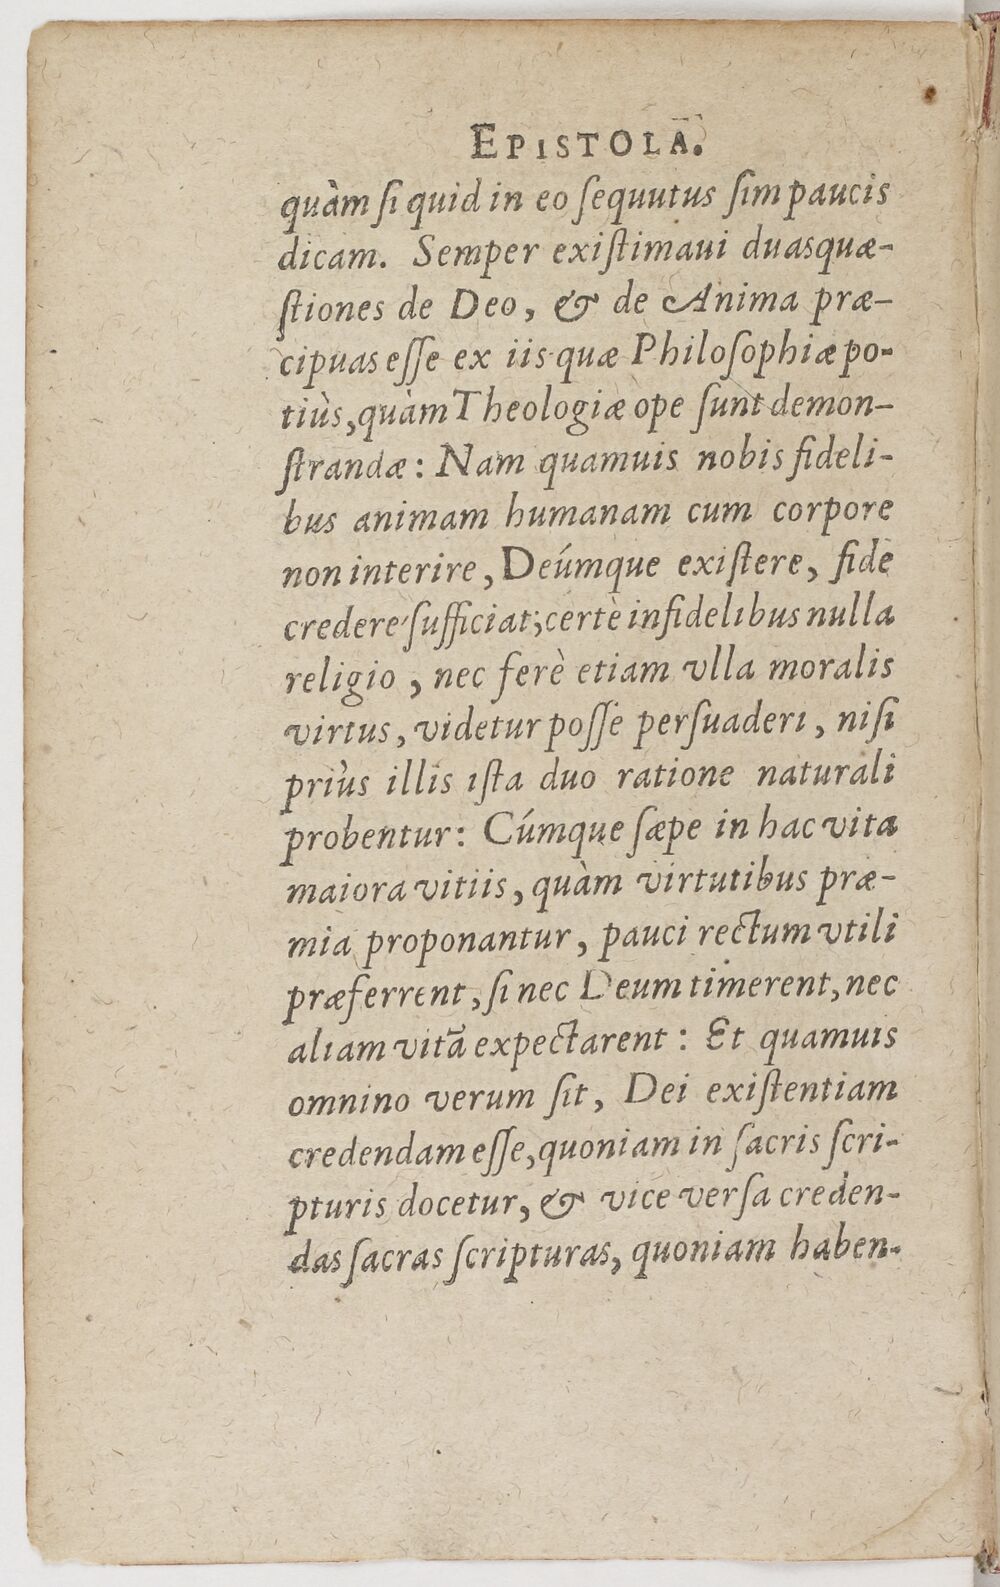 EPISTOLA.
quàm si quid in eo sequutus sim paucis
dicam. Semper existimaui duas quæ-
stiones de Deo, & de Anima præ-
cipuas esse ex iis quæ Philosophiæ po-
tiùs, quàm Theologiæ ope sunt demon-
strandæ: Nam quamuis nobis fideli-
bus animam humanam cum corpore
non interire, Deúmque existere, fide
credere sufficiat; certè infidelibus nulla
religio, nec ferè etiam vlla moralis
virtus, videtur posse persuaderi, nisi
priùs illis ista duo ratione naturali
probentur: Cúmque sæpe in hac vita
maiora vitiis, quàm virtutibus præ-
mia proponantur, pauci rectum vtili
præferrent, si nec Deum timerent, nec
aliam vitā expectarent: Et quamuis
omnino verum sit, Dei existentiam
credendam esse, quoniam in sacris scri-
pturis docetur, & vice versa creden-
das sacras scripturas, quoniam haben-